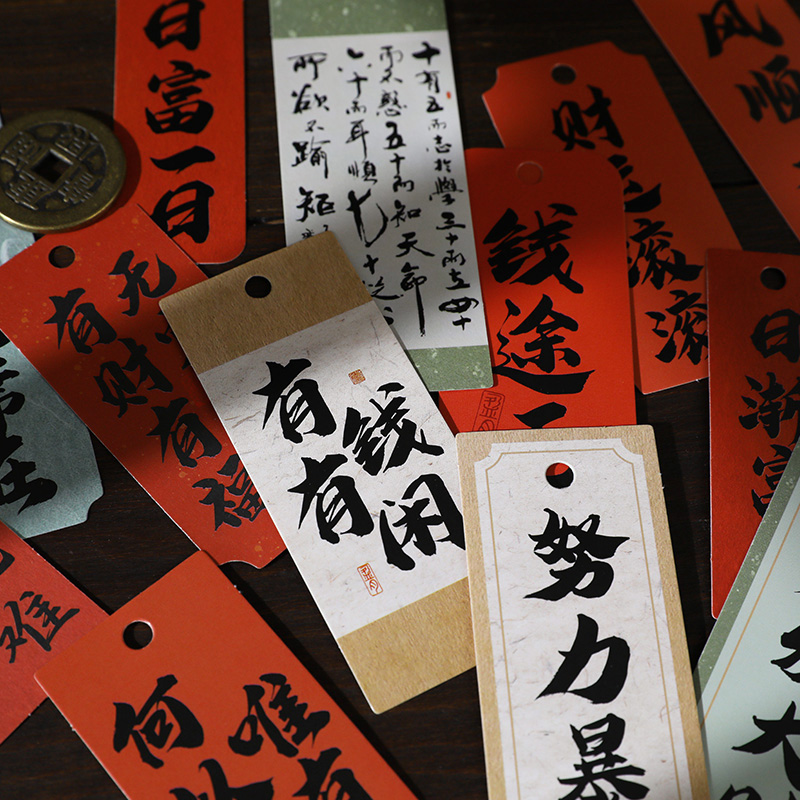 日富一日
十有五而志於學三十而立四十
而不惑五十而知天命
六十而耳順七十從
所欲不踰矩
财
滚滚
风顺
钱途
无
有财有福
有钱
有闲
日渐富
难
何
唯有
努力暴
大